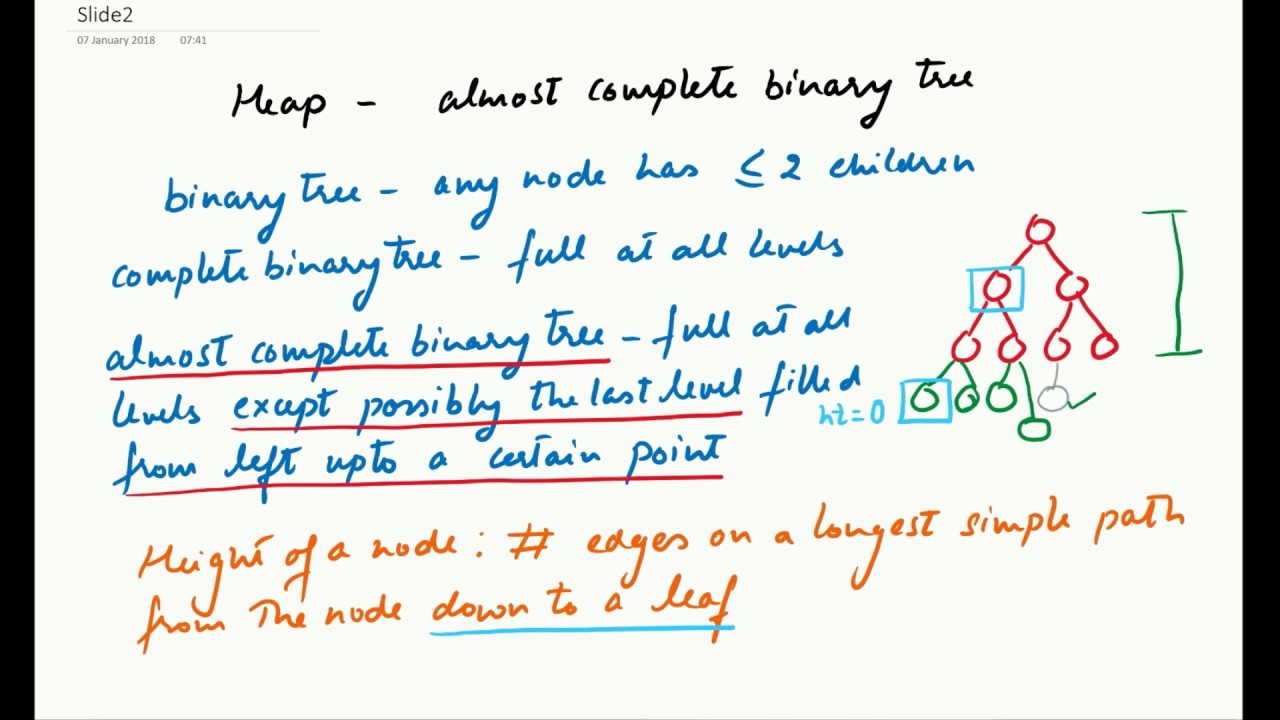 Slide2
07 January 2018 07:41
Heap - almost complete binary tree
binary tree - any node has ≤ 2 children
complete binary tree - full at all levels
almost complete binary tree - full at all
levels except possibly the last level filled
from left upto a certain point
ht = 0
Height of a node : # edges on a longest simple path
from the node down to a leaf